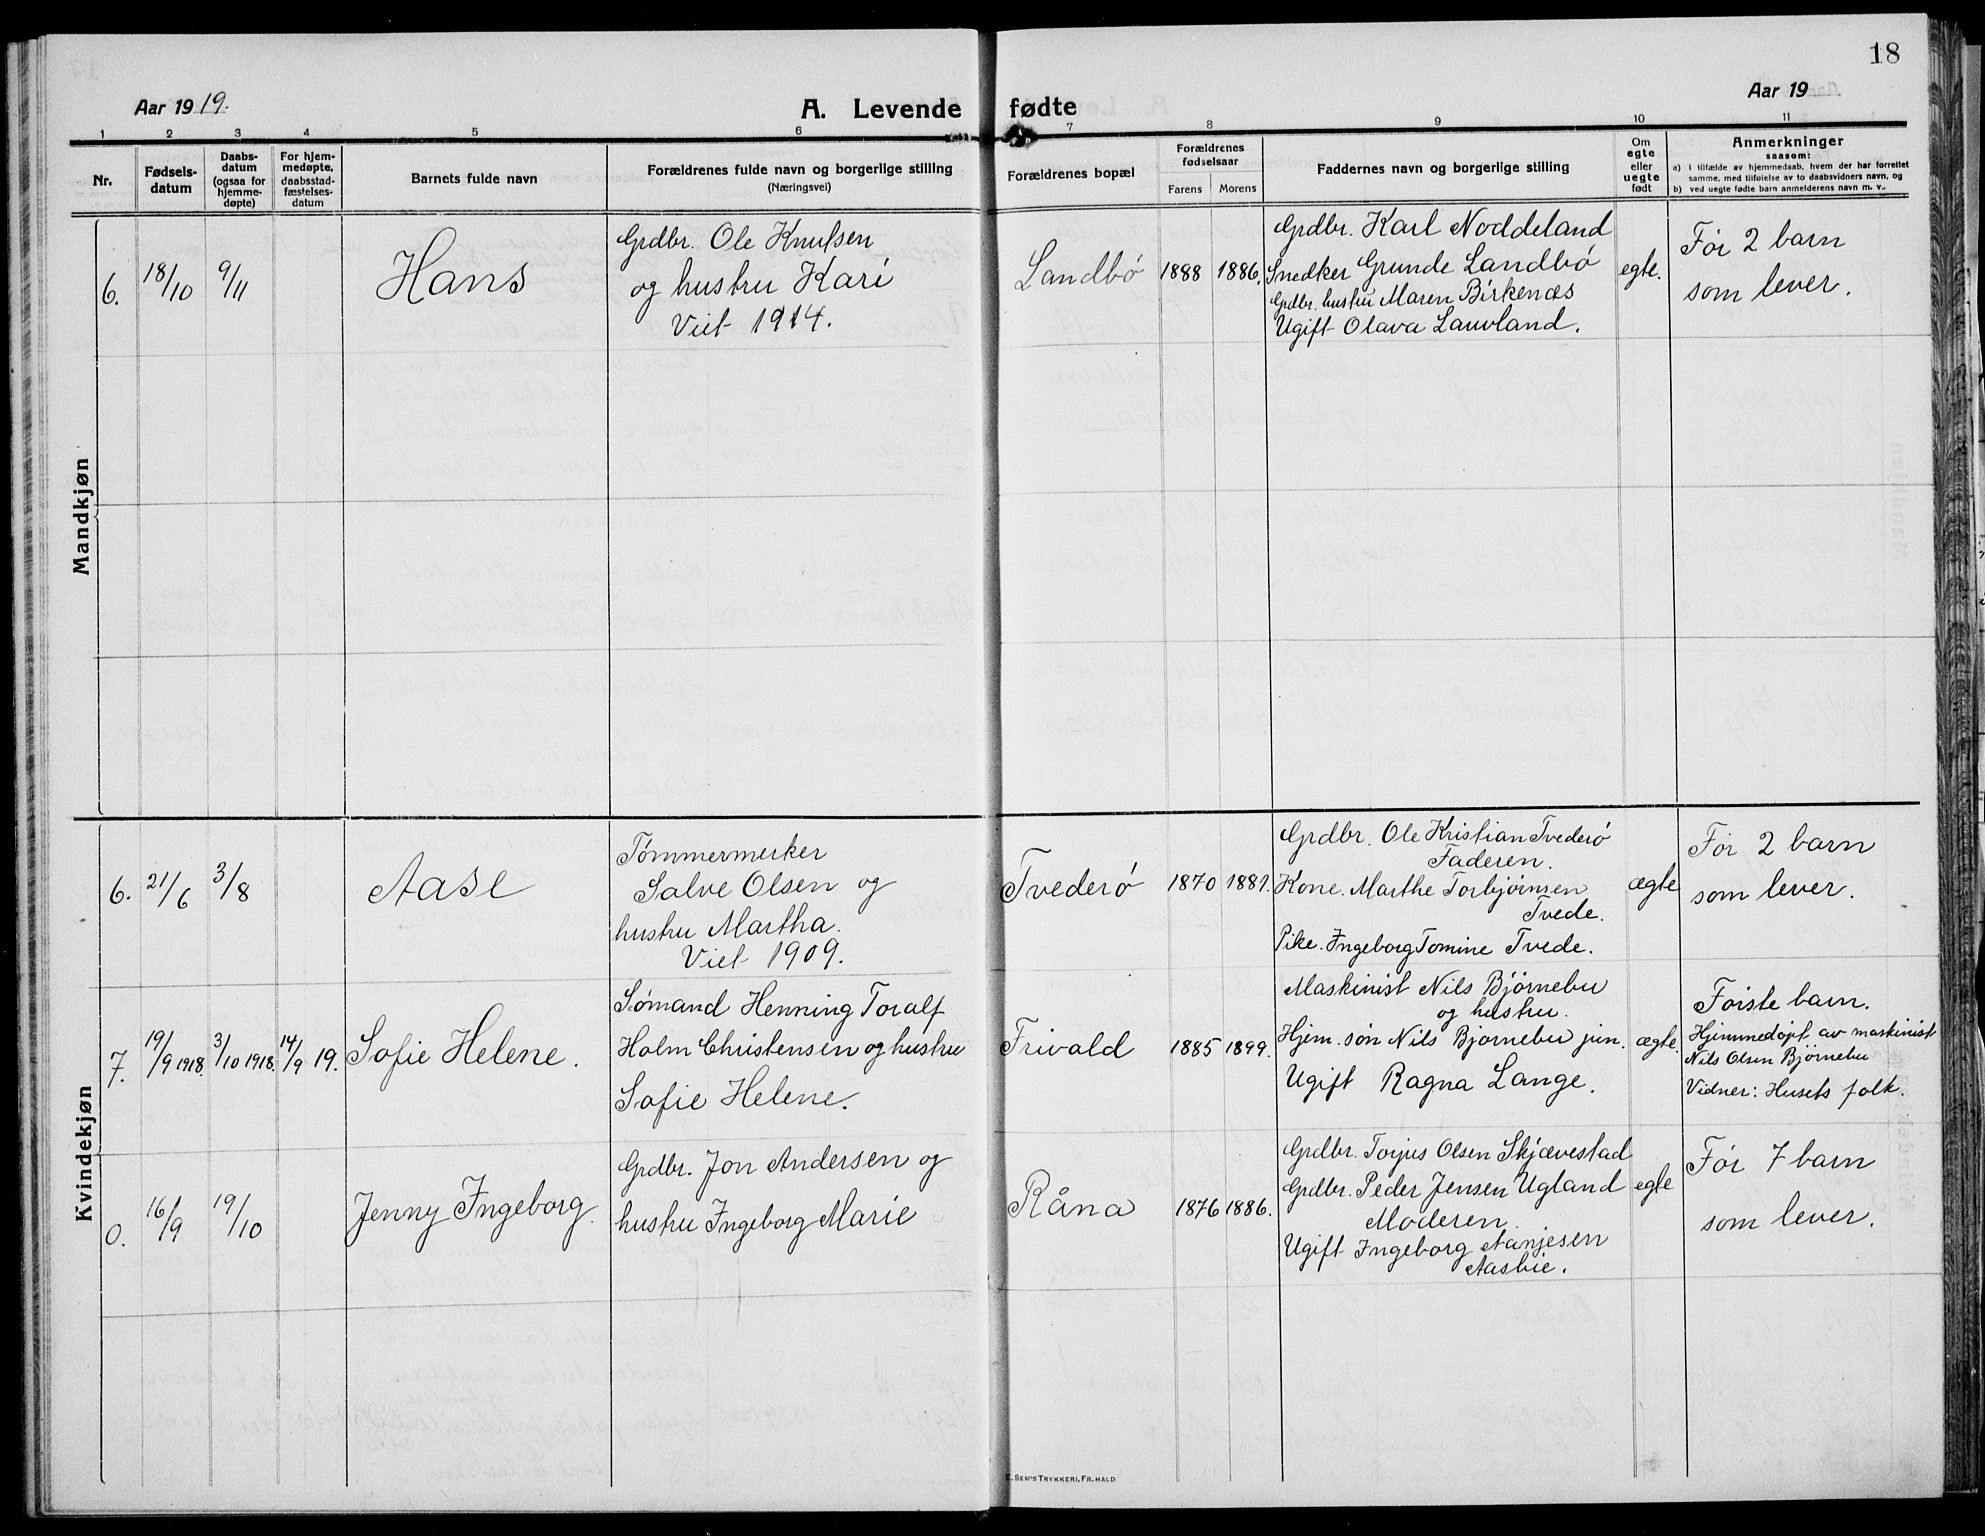 18
Aar 1919.
A. Levende fødte
Aar 19
1 2 3 4 5 6 7 8 9 10 11
Nr.
Fødsels-
datum
Daabs-
datum
(ogsaa for
hjemme-
døpte)
For hjem-
medøpte,
daabsstad-
fæstelses-
datum
Barnets fulde navn
Forældrenes fulde navn og borgerlige stilling
(Næringsvei)
Forældrenes bopæl
Forældrenes
fødselsaar
Farens Morens
Faddernes navn og borgerlige stilling
Om
egte
eller
uegte
født
Anmerkninger
saasom:
a) i tilfælde av hjemmedaab, hvem der har forrettet
samme, med tilføielse av to daabsvidners navn, og
b) ved uegte fødte barn anmelderens navn m. v..
Mandkjøn
6. 18/10 9/11 Hans
Grdbr. Ole Knutsen
og hustru Kari
Viet 1914.
Landbö 1888 1886.
Grdbr. Karl Noddeland
Snedker Grunde Landbö
Grdbr. hustru Maren Birkenæs
Ugift Olava Lauvland.
egte.
Før 2 barn
som lever.
Kvindekjøn
6. 21/6 3/8 Aase
Tømmermerker
Salve Olsen og
hustru Martha.
Viet 1909.
Tvederö 1870 1881.
Grdbr. Ole Kristian Tvederö
Faderen.
Kone. Marthe Torbjørnsen
Tvede.
Pike. Ingeborg Tomine Tvede.
ægte
Før 2 barn
som lever.
7. 19/9 1918. 3/10 1918. 14/9 19. Sofie Helene.
Sømand Henning Toralf
Holm Christensen og hustru
Sofie Helene.
Frivold 1885 1899.
Maskinist Nils Bjørnebu
og hustru.
Hjem. søn Nils Bjørnebu jun.
Ugift Ragna Lange.
ægte.
Første barn.
Hjemmedøpt av maskinist
Nils Olsen Bjørnebu
Vidner: Husets folk.
0. 16/9 19/10 Jenny Ingeborg.
Grdbr. Jon Andersen og
hustru Ingeborg Marie
Råna 1876 1886.
Grdbr. Torjus Olsen Skjævestad
Grdbr. Peder Jensen Ugland
Moderen.
Ugift Ingeborg Aanjesen
Aasbie.
egte
Før 7 barn
som lever.
E. Sem's Trykkeri, Fr.hald